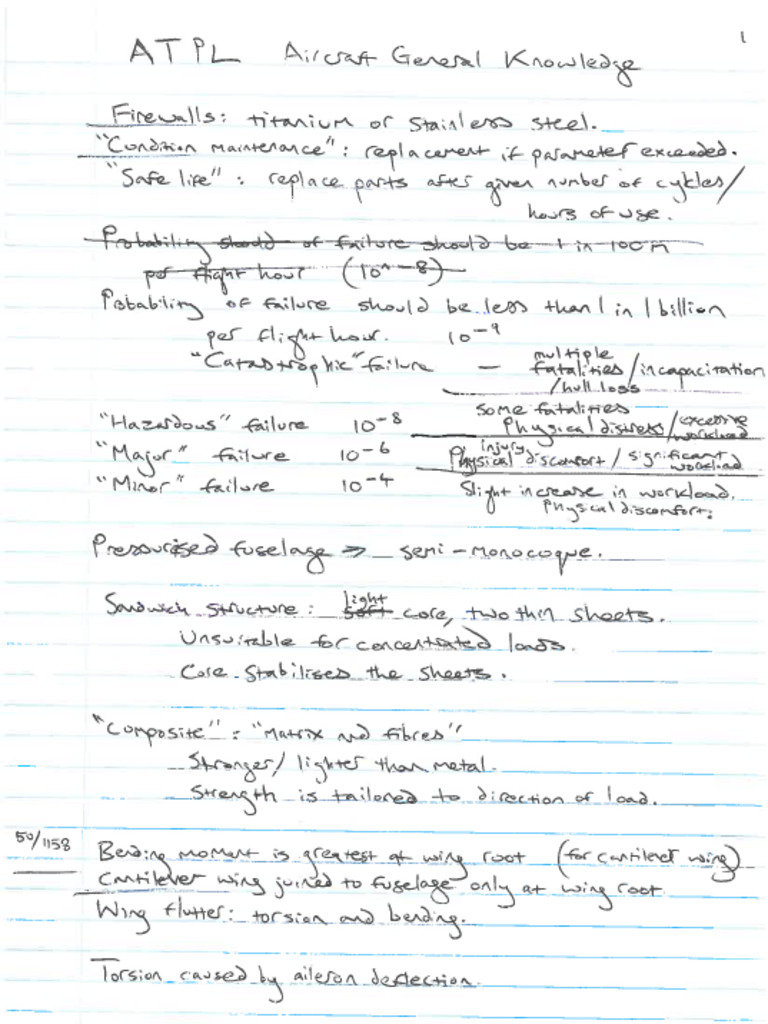 1
ATPL Aircraft General Knowledge
Firewalls: titanium or stainless steel.
"Condition maintenance": replacement if parameter exceeded.
"Safe life": replace parts after given number of cykles/
hours of use.
Probability should of failure should be 1 in 100 m
per flight hour (10^-8)
Pobability of failure should be less than 1 in 1 billion
per flight hour. 10^-9
"Catastrophic" failure — multiple fatalities/incapacitation
/hull loss
some fatalities
"Hazardous" failure 10^-8 Physical distress/excessive workload
"Major" failure 10^-6 injury Physical discomfort/significant workload
"Minor" failure 10^-4 Slight increase in workload.
Physical discomfort.
Pressurised fuselage => semi-monocoque.
Sandwich structure: soft light core, two thin sheets.
Unsuitable for concentrated loads.
Core stabilises the sheets.
"Composite": "Matrix and fibres"
Stronger/lighter than metal.
Strength is tailored to direction of load.
50/1158
Bending moment is greatest at wing root (for cantilever wing)
Cantilever wing joined to fuselage only at wing root.
Wing flutter: torsion and bending.
Torsion caused by aileron deflection.